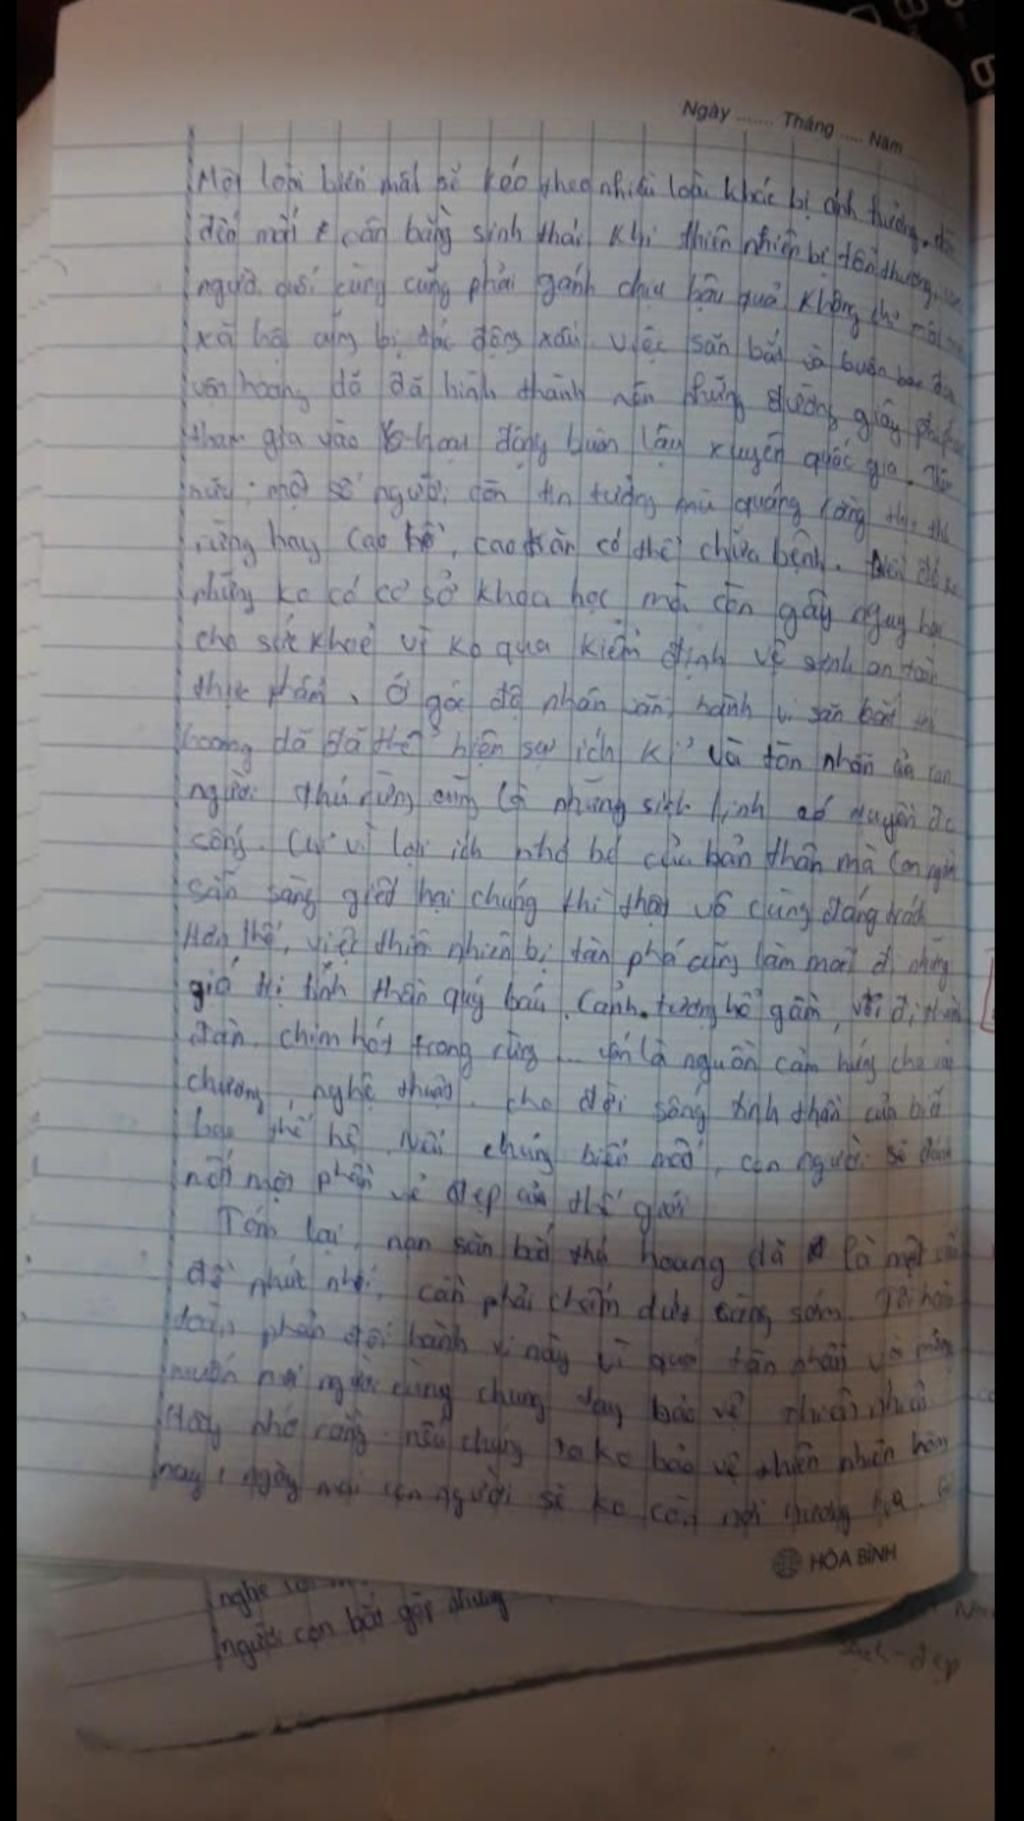 Ngày ....... Tháng ..... Năm
Một loài biến mất sẽ kéo theo nhiều loài khác bị ảnh hưởng, dẫn
đến mất cân bằng sinh thái. Khi thiên nhiên bị tổn thương, con
người cuối cùng cũng phải gánh chịu hậu quả. Không chỉ
xã hội cũng bị tác động xấu. Việc săn bắt và buôn bán
hoang dã đã hình thành nên những đường giây
tham gia vào hoạt động buôn lậu xuyên quốc gia.
nữa, một số người còn tin tưởng mù quáng rằng
rừng hay cao hổ, cao trăn có thể chữa bệnh.
những ko có cơ sở khoa học mà còn gây nguy hại
cho sức khoẻ vì ko qua kiểm định vệ sinh an toàn
thực phẩm. Ở góc độ nhân văn, hành vi săn bắt thú
hoang dã đã thể hiện sự ích kỉ và tàn nhẫn của con
người. thú rừng cũng là những sinh linh có quyền đc
sống. Chỉ vì lợi ích nhỏ bé của bản thân mà con người
sẵn sàng giết hại chúng thì thật vô cùng đáng trách
Hơn thế, việc thiên nhiên bị tàn phá cũng làm mất đi những
giá trị tinh thần quý báu. Cảnh tượng hổ gầm, voi đi thành
đàn, chim hót trong rừng ... vốn là nguồn cảm hứng cho văn
chương, nghệ thuật, cho đời sống tinh thần của biết
bao thế hệ. Nếu chúng biến mất, con người sẽ đánh
mất một phần vẻ đẹp của thế giới
Tóm lại, nạn săn bắt thú hoang dã là một vấn
đề nhức nhối, cần phải chấm dứt càng sớm. Tôi hoàn
toàn phản đối hành vi này vì quá tàn nhẫn và mong
muốn mọi người cùng chung tay bảo vệ thiên nhiên
Hãy nhớ rằng nếu chúng ta ko bảo vệ thiên nhiên hôm
nay, ngày mai con người sẽ ko còn nơi nương tựa.
HÒA BÌNH
nghe
người còn bắt gặp
đẹp